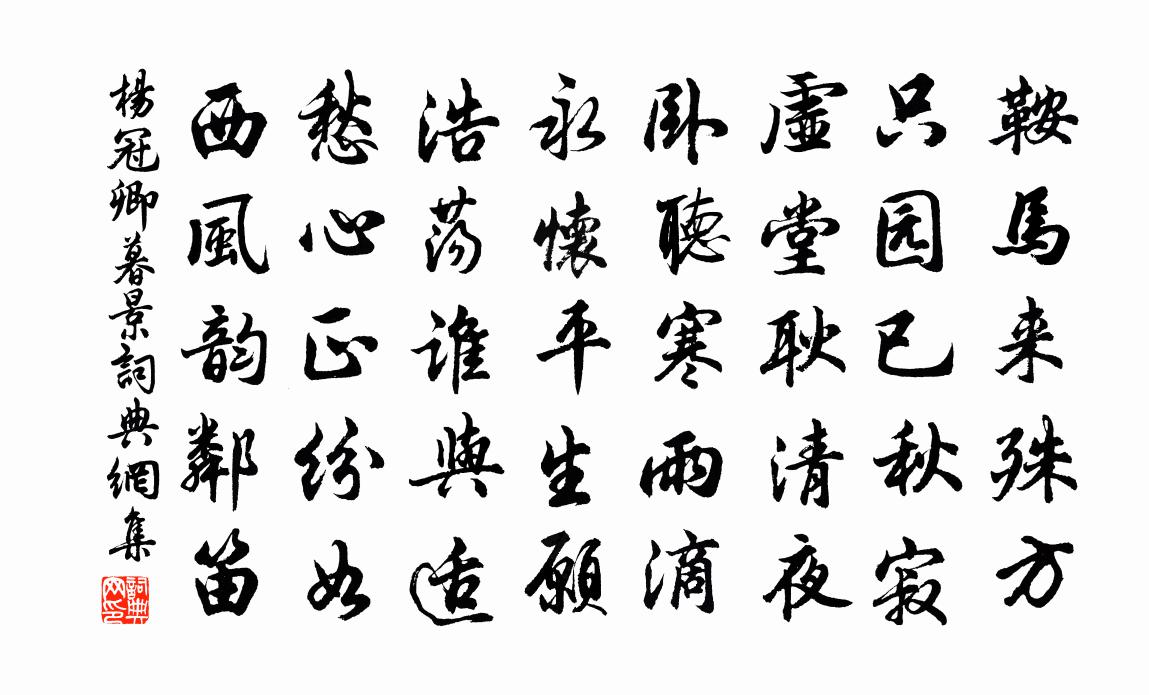 鞍馬来殊方
只园已秋寂
虛堂耿清夜
臥聽寒雨滴
永懷平生願
浩荡誰與适
愁心正纷如
西風韵鄰笛
楊冠卿暮景詞典網集
詞典网印